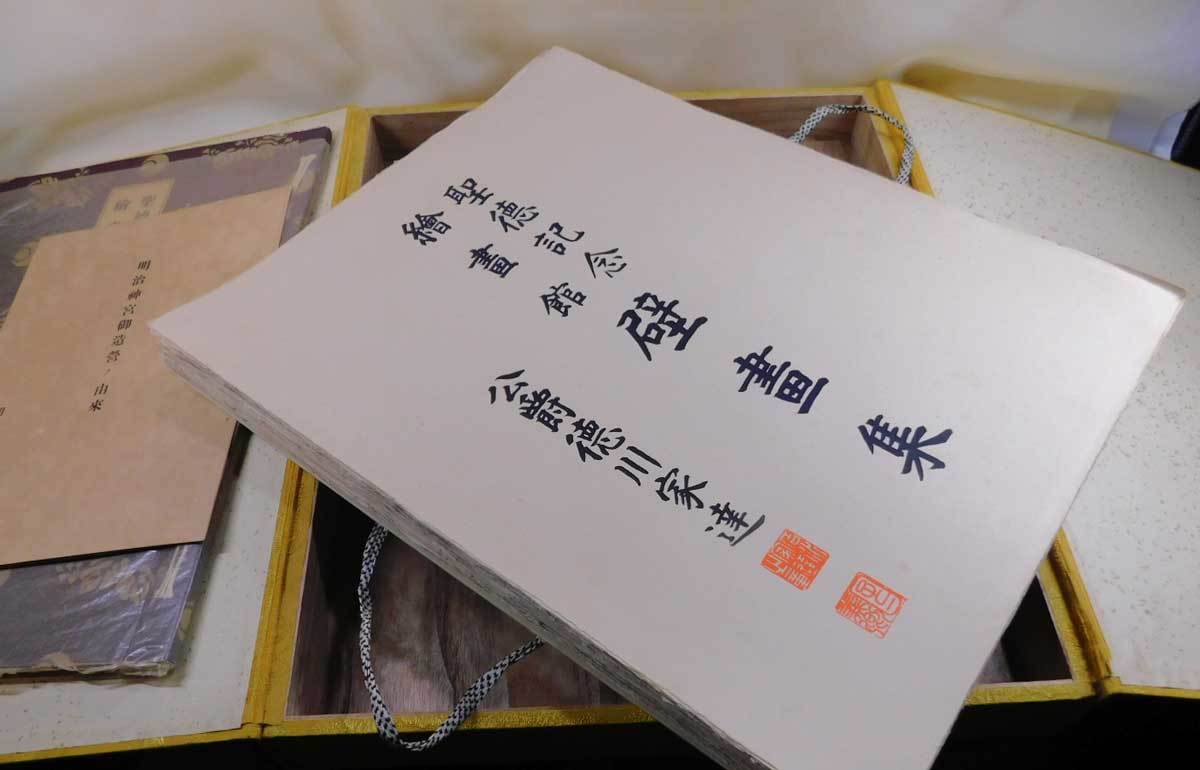 聖德記念
繪畫館
壁畫集
公爵德川家達
明治神宮御造營ノ由來